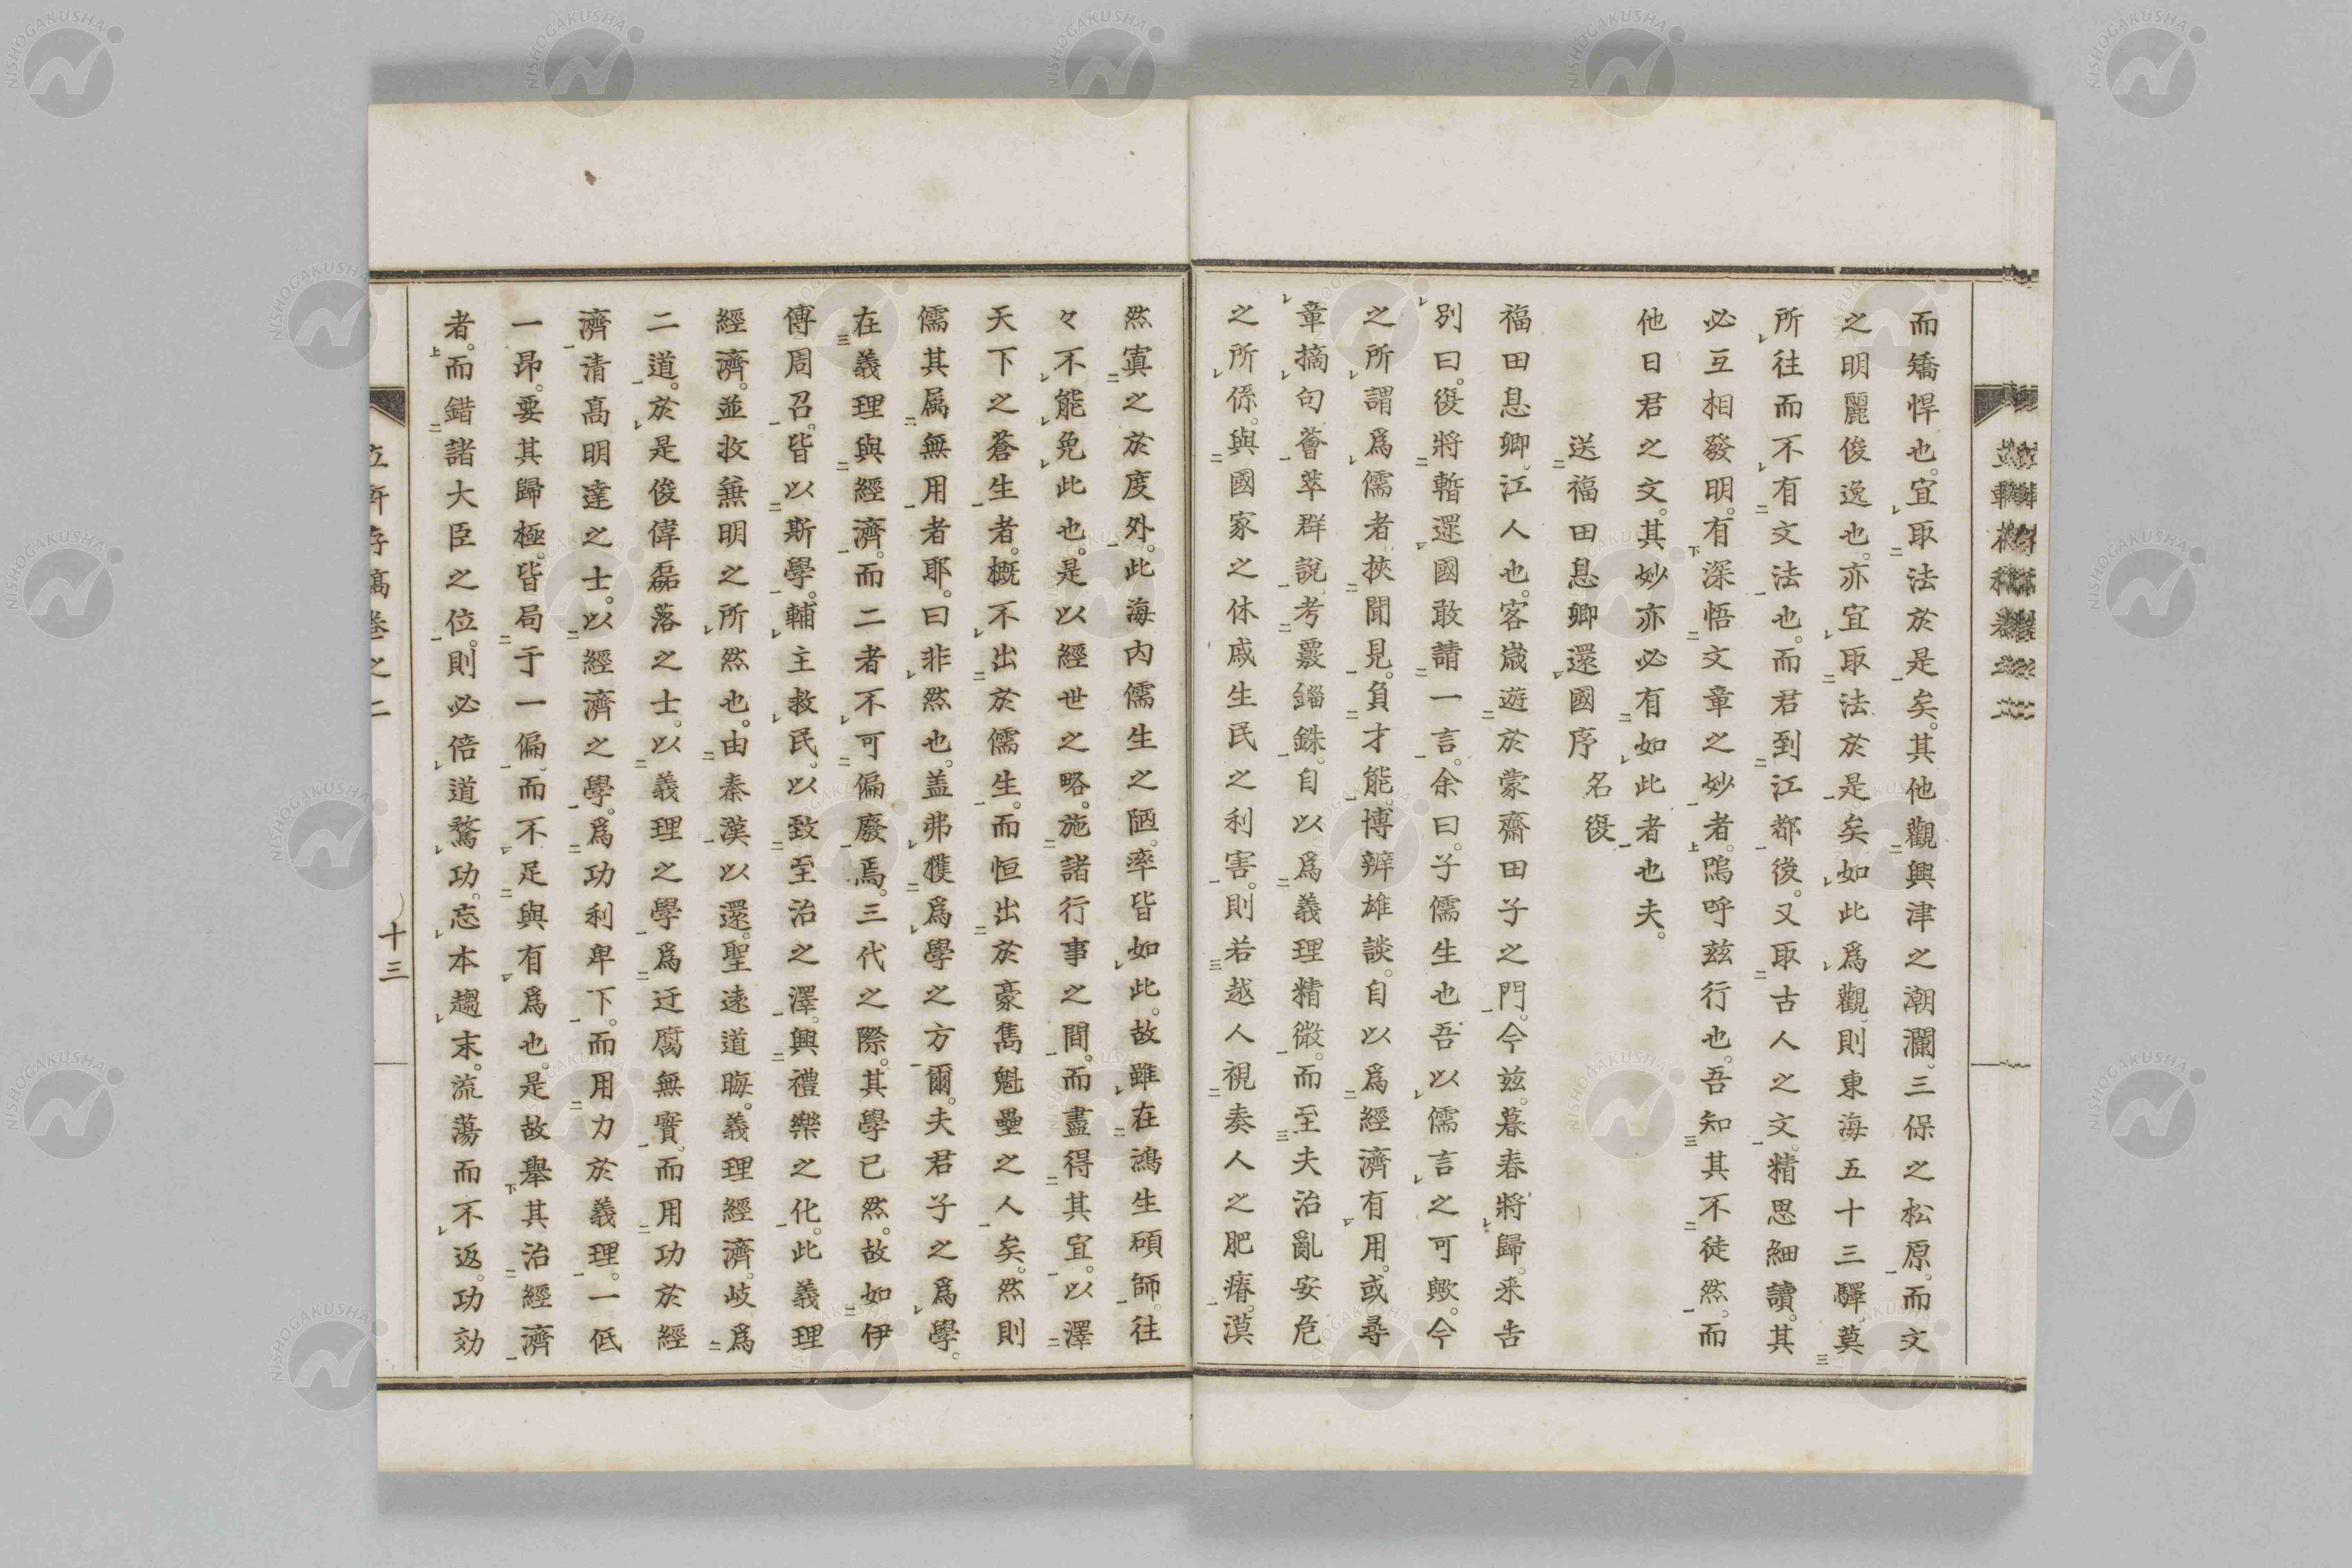 而矯悍也。宜取法於是矣。其他觀興津之潮瀾。三保之松原。而文
之明麗俊逸也。亦宜取法於是矣如此爲觀。則東海五十三驛莫
所往而不有文法也。而君到江都後。又取古人之文。精思細讀。其
必互相發明。有深悟文章之妙者。嗚呼茲行也。吾知其不徒然。而
他日君之文。其妙亦必有如此者也夫。
送福田息卿還國序 名復
福田息卿。江人也。客歲遊於蒙齋田子之門。今茲。暮春將歸。来告
別曰。復將暫還國敢請一言。余曰。子儒生也吾以儒言之可歟。今
之所謂爲儒者挾聞見。負才能。博辨雄談。自以爲經濟有用。或尋
章摘句薈萃群說考覈錙銖。自以爲義理精微。而至夫治亂安危
之所係。與國家之休戚生民之利害。則若越人視奏人之肥瘠。漠
然寘之於度外。此海内儒生之陋。率皆如此。故雖在鴻生碩師。往
々不能免此也。是以經世之略。施諸行事之間。而盡得其宜。以澤
天下之蒼生者。概不出於儒生。而恒出於豪雋魁壘之人矣。然則
儒其属無用者耶。曰非然也。盖弗獲爲學之方爾。夫君子之爲學。
在義理與經濟。而二者不可偏廢焉。三代之際。其學已然。故如伊
傅周召。皆以斯學。輔主救民。以致至治之澤。興禮樂之化。此義理
經濟。並收無明之所然也。由秦漢以還。聖遠道晦。義理經濟。岐爲
二道。於是俊偉磊落之士。以義理之學爲迂腐無實。而用功於經
濟清高明達之士。以經濟之學。爲功利卑下。而用力於義理。一低
一昂。要其歸極。皆局于一偏。而不足與有爲也。是故舉其治經濟
者。而錯諸大臣之位。則必倍道騖功。忘本趨末。流蕩而不返。功効
卷之二
十三